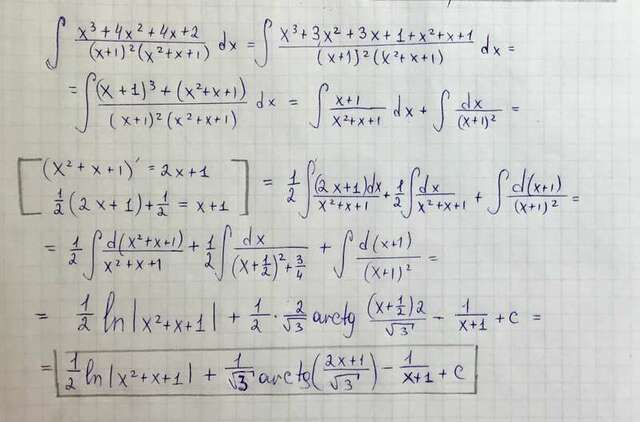 ∫ (x³+4x²+4x+2)/((x+1)²(x²+x+1)) dx = ∫ (x³+3x²+3x+1+x²+x+1)/((x+1)²(x²+x+1)) dx =
= ∫ ((x+1)³+(x²+x+1))/((x+1)²(x²+x+1)) dx = ∫ (x+1)/(x²+x+1) dx + ∫ dx/(x+1)² =
[(x²+x+1)' = 2x+1
½(2x+1)+½ = x+1] = ½ ∫ (2x+1)dx/(x²+x+1) + ½ ∫ dx/(x²+x+1) + ∫ d(x+1)/(x+1)² =
= ½ ∫ d(x²+x+1)/(x²+x+1) + ½ ∫ dx/((x+½)²+¾) + ∫ d(x+1)/(x+1)² =
= ½ ln|x²+x+1| + ½ · 2/√3 arctg ((x+½)2)/√3 − 1/(x+1) + c =
= ½ ln|x²+x+1| + 1/√3 arctg((2x+1)/√3) − 1/(x+1) + c